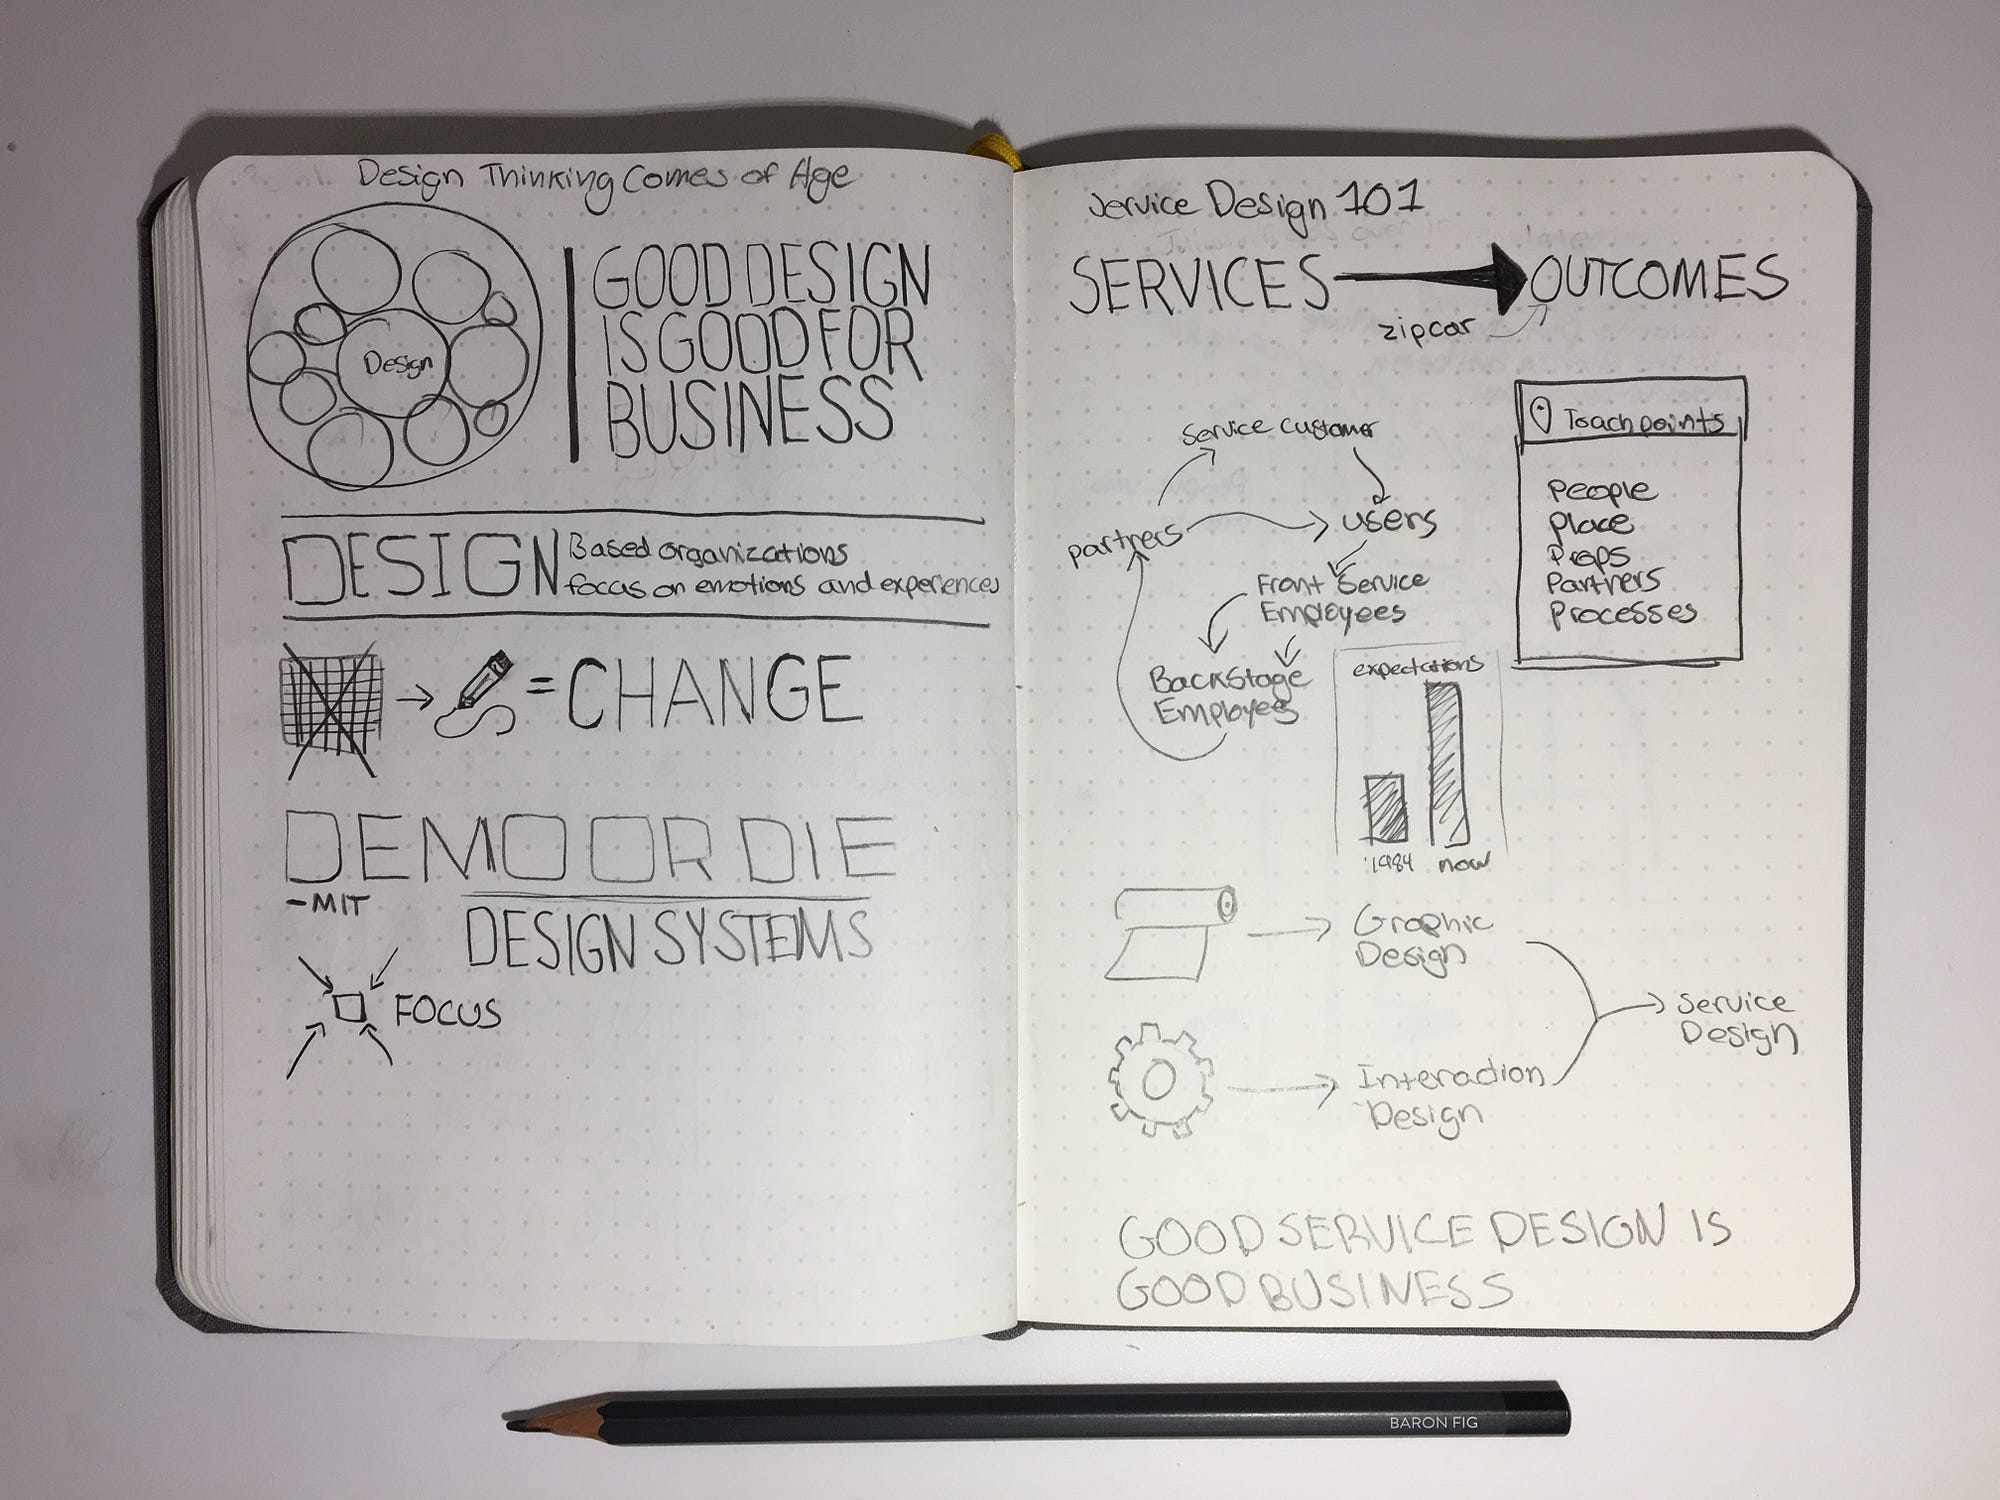 Design Thinking Comes of Age
Design
GOOD DESIGN
IS GOOD FOR
BUSINESS
DESIGN
Based organizations
focus on emotions and experiences
= CHANGE
DEMO OR DIE
- MIT
DESIGN SYSTEMS
FOCUS
Service Design 101
SERVICES
OUTCOMES
zipcar
Service Customer
partners
users
Front Service
Employees
Backstage
Employees
Touchpoints
People
Place
Props
Partners
Processes
expectations
1984
now
Graphic
Design
Interaction
Design
Service
Design
GOOD SERVICE DESIGN IS
GOOD BUSINESS
BARON FIG